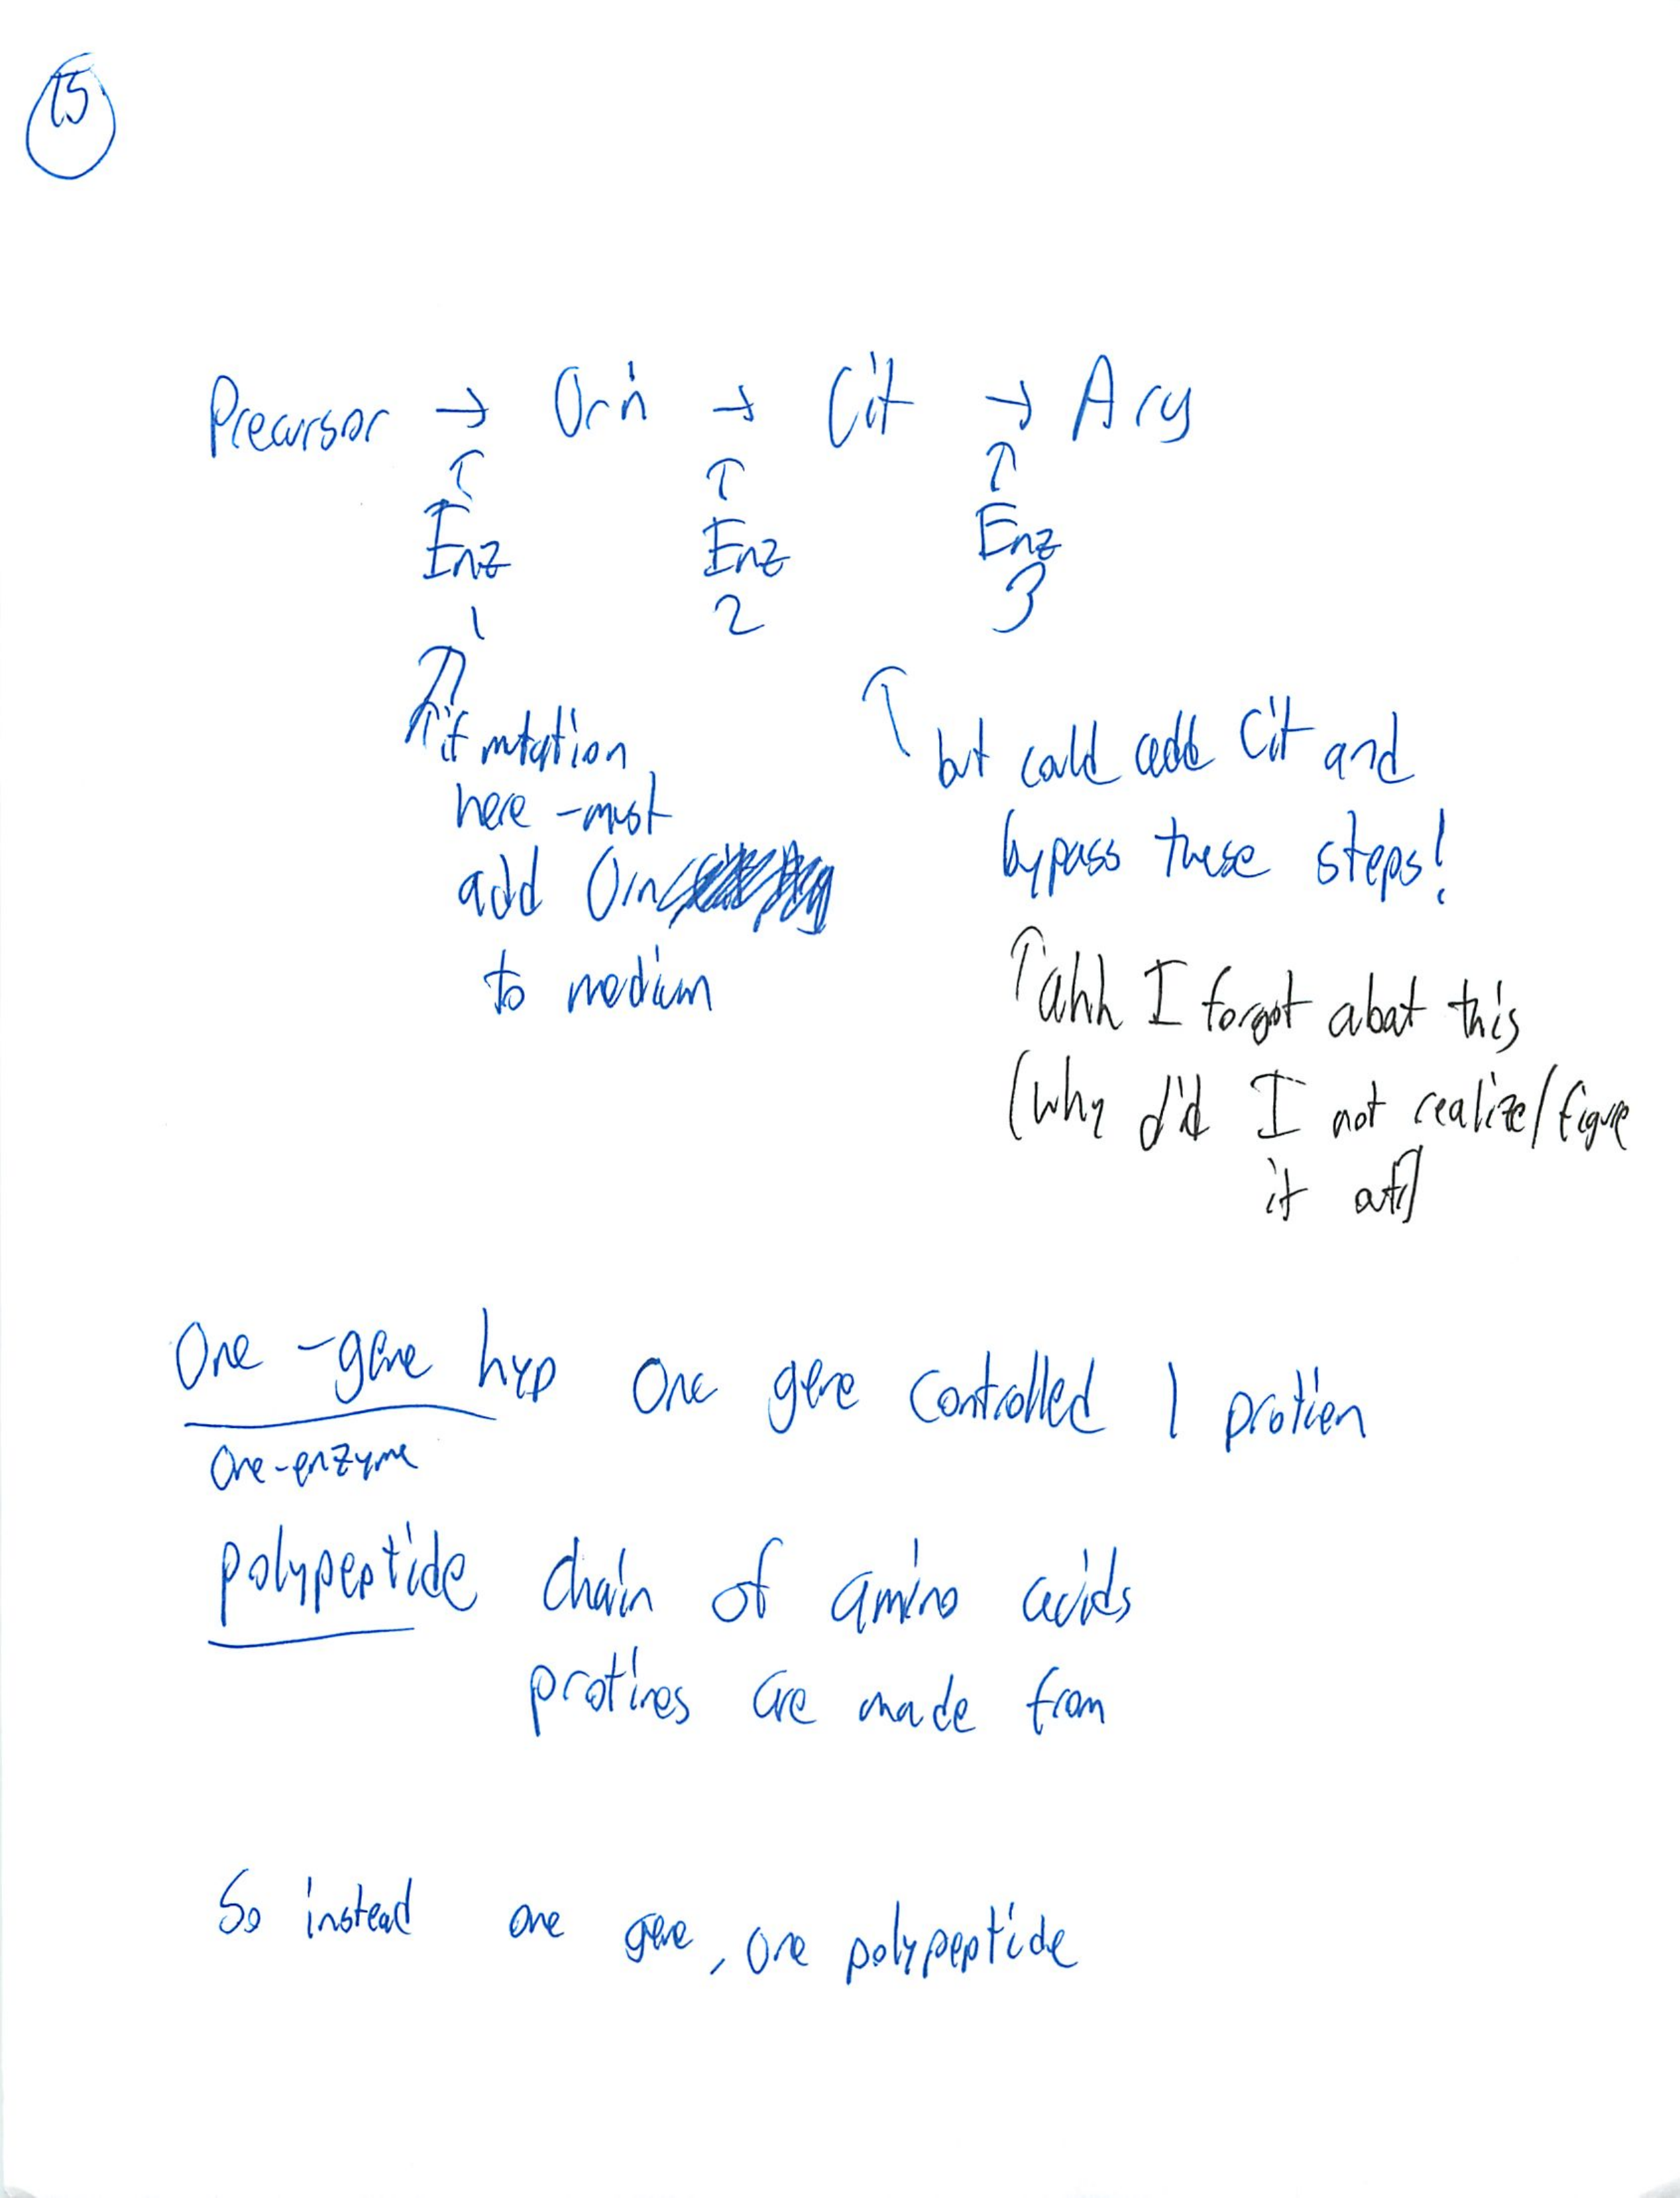 15
Precursor → Orn → Cit → Arg
↑ ↑ ↑
Enz Enz Enz
1 2 3
↑ if mutation
here - must
add Orn
to medium
↑ but could add Cit and
bypass these steps!
↑ ahh I forgot about this
(why did I not realize/figure
it out)
One-gene hyp One gene controlled 1 protien
One-enzyme
polypeptide chain of amino acids
protines are made from
So instead one gene, one polypeptide